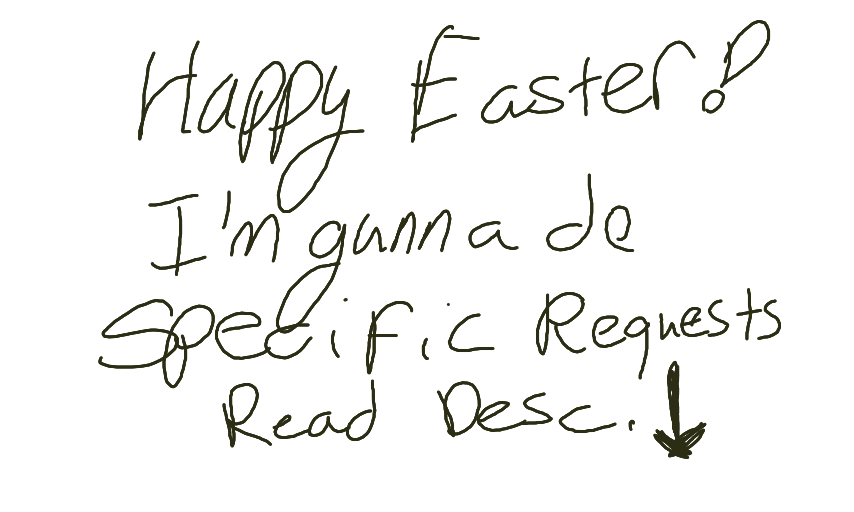 Happy Easter!
I'm gunna do
Specific Requests
Read Desc.